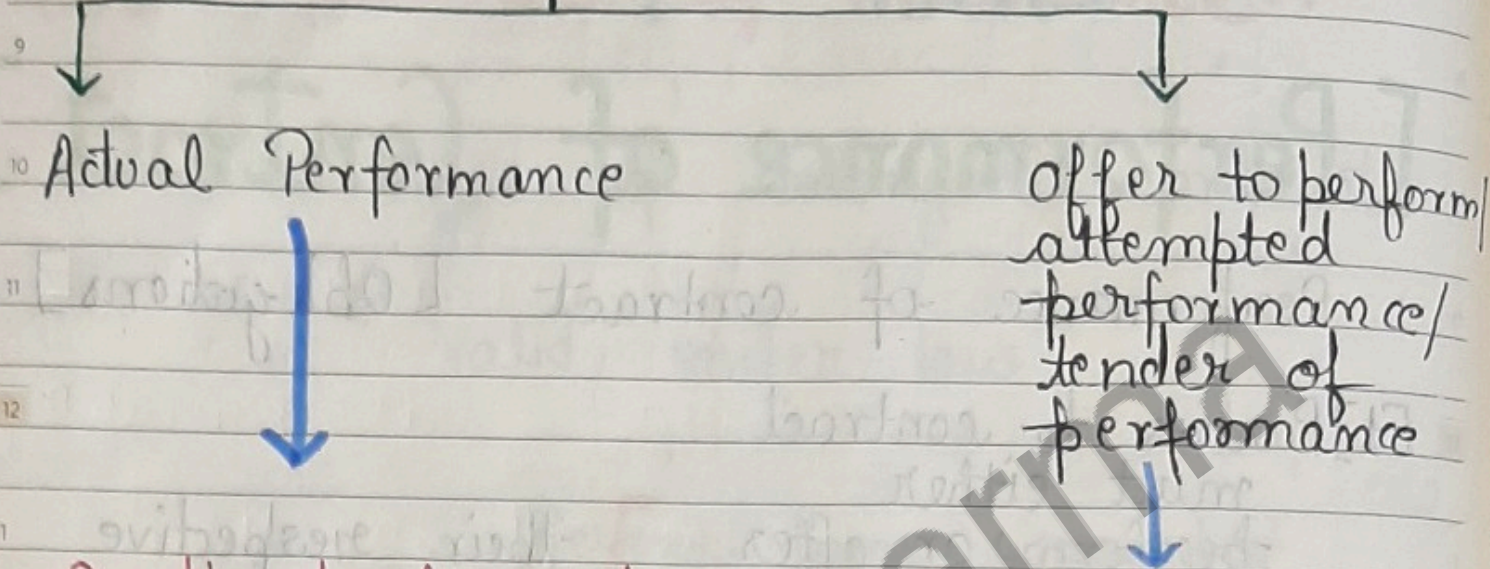 9
10 Actual Performance
offer to perform/
attempted
performance/
tender of
performance
11
12
1